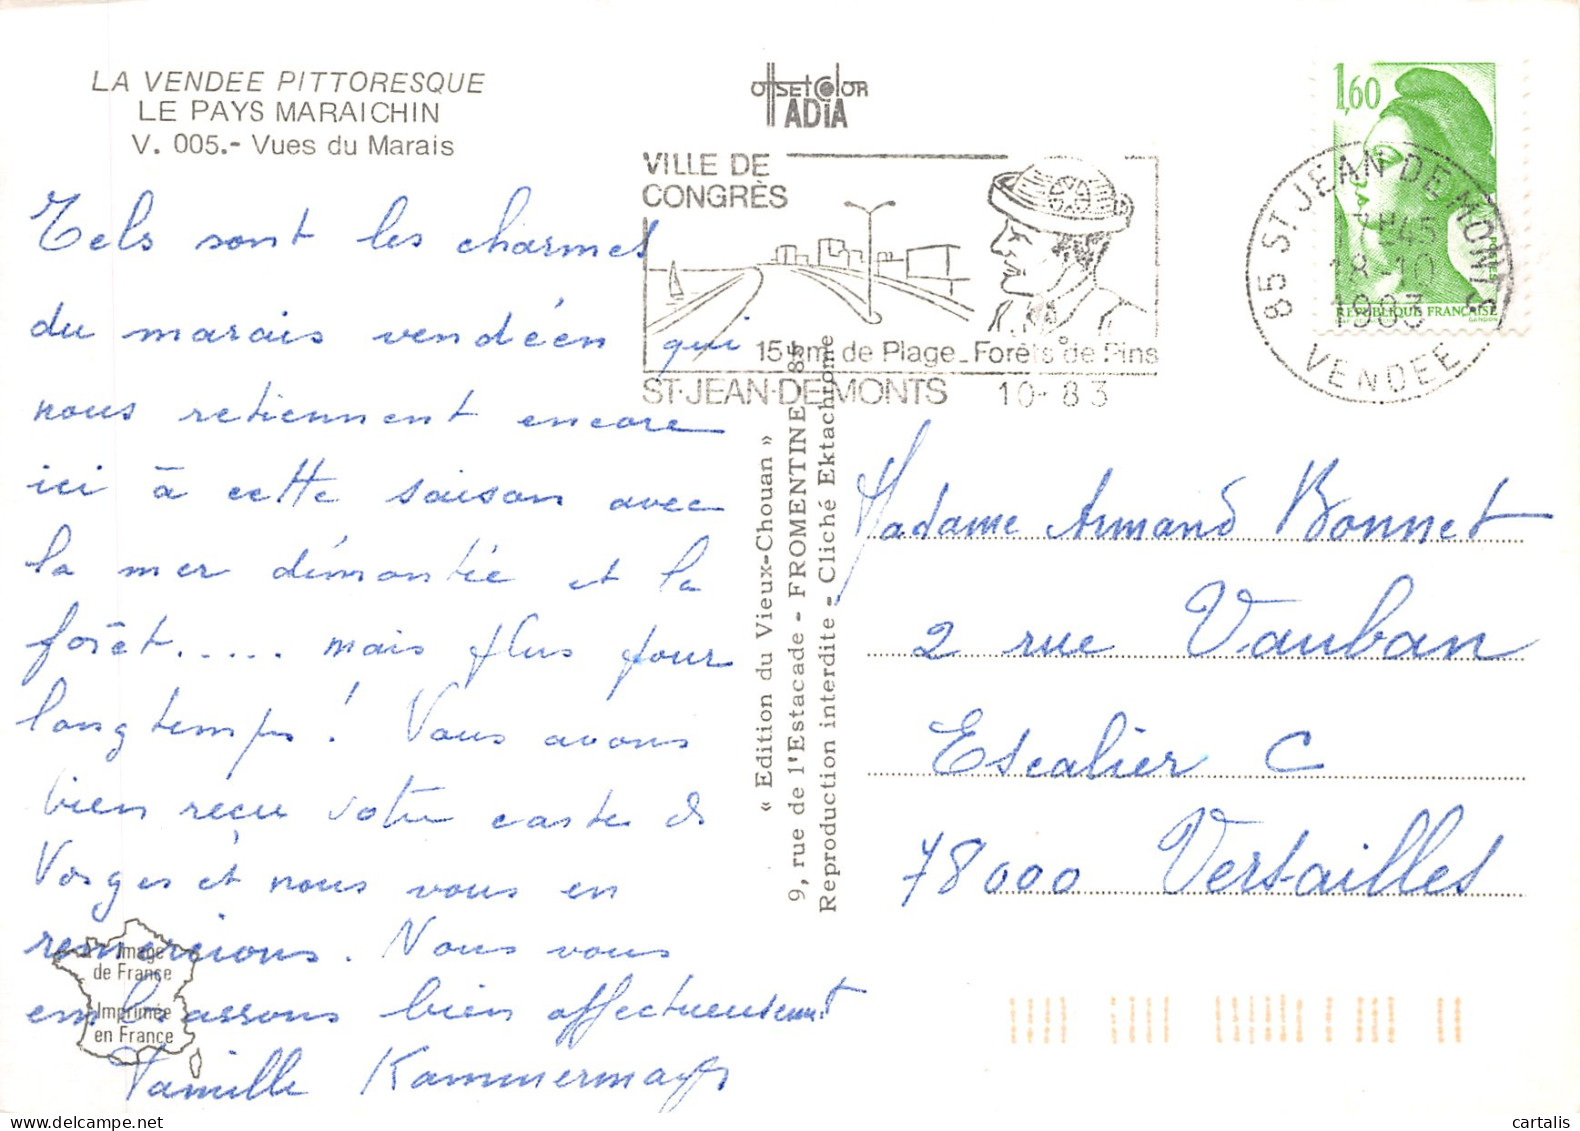 LA VENDEE PITTORESQUE
LE PAYS MARAICHIN
V. 005.- Vues du Marais
OffsetColor
ADIA
VILLE DE
CONGRÈS
15 km de Plage - Forêts de Pins
ST-JEAN-DE-MONTS 10-83
1,60
POSTES
REPUBLIQUE FRANÇAISE
85 ST JEAN DE MONTS
45
18-10
1983
VENDEE
Tels sont les charmes
du marais vendéen qui
nous retiennent encore
ici à cette saison avec
la mer démontée et la
forêt..... mais plus pour
longtemps! Nous avons
bien reçu votre carte des
Vosges et nous vous en
remercions. Nous vous
embrassons bien affectueusement
Famille
« Edition du Vieux-Chouan »
9, rue de l'Estacade - FROMENTINE 85
Reproduction interdite - Cliché Ektachrome
Madame Armand Bonnet
2 rue Vauban
Escalier C
78000 Versailles
Image
de France
Imprimée
en France
cartalis